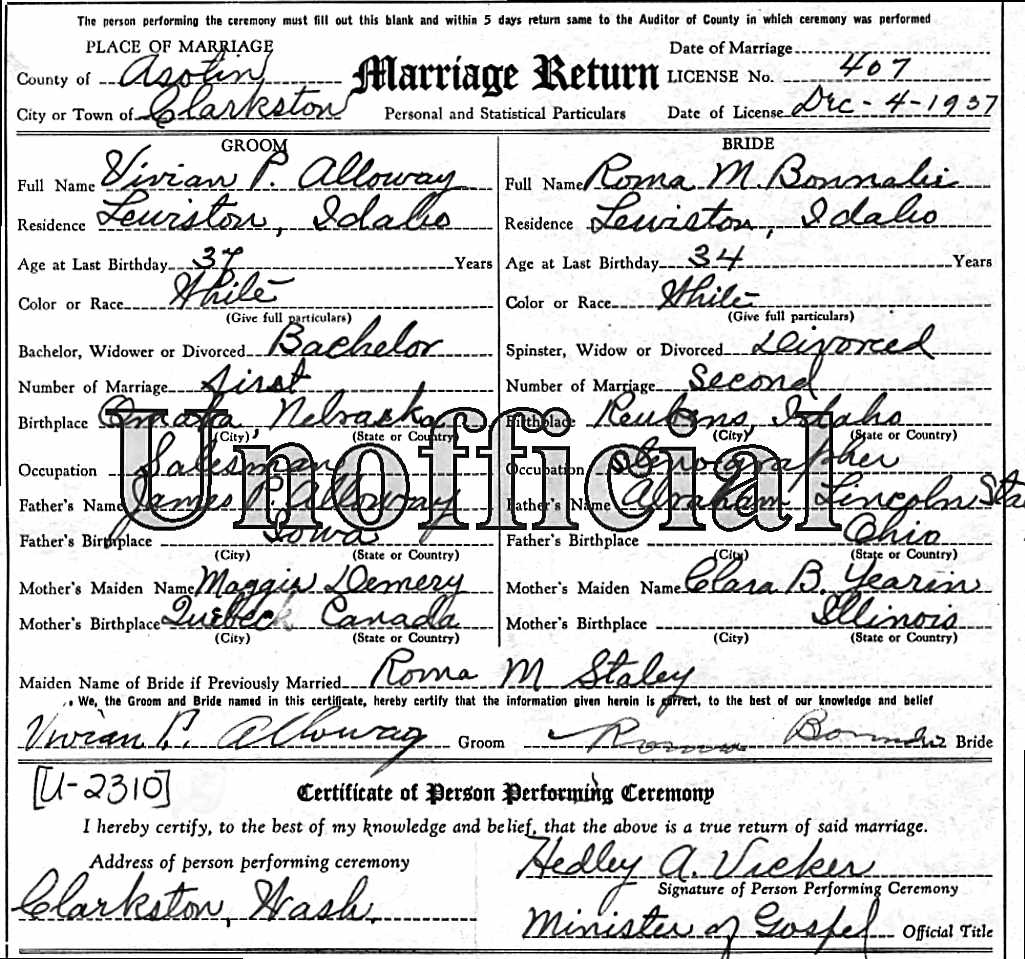 The person performing the ceremony must fill out this blank and within 5 days return same to the Auditor of County in which ceremony was performed
PLACE OF MARRIAGE
County of Asotin
City or Town of Clarkston
Marriage Return
Personal and Statistical Particulars
Date of Marriage
LICENSE No. 407
Date of License Dec-4-1937
GROOM
Full Name Vivian P. Alloway
Residence Lewiston, Idaho
Age at Last Birthday 37 Years
Color or Race White
(Give full particulars)
Bachelor, Widower or Divorced Bachelor
Number of Marriage first
Birthplace Omaha, Nebraska
(City) (State or Country)
Occupation Salesman
Father's Name James P. Alloway
Father's Birthplace Iowa
(City) (State or Country)
Mother's Maiden Name Maggie Demery
Mother's Birthplace Quebeck Canada
(City) (State or Country)
BRIDE
Full Name Roma M. Bonnalie
Residence Lewiston, Idaho
Age at Last Birthday 34 Years
Color or Race White
(Give full particulars)
Spinster, Widow or Divorced Divorced
Number of Marriage Second
Birthplace Reubens, Idaho
(City) (State or Country)
Occupation Stenographer
Father's Name Abraham Lincoln Sta
Father's Birthplace Ohio
(City) (State or Country)
Mother's Maiden Name Clara B. Yearin
Mother's Birthplace Illinois
(City) (State or Country)
Unofficial
Maiden Name of Bride if Previously Married Roma M Staley
We, the Groom and Bride named in this certificate, hereby certify that the information given herein is correct, to the best of our knowledge and belief
Vivian P. Alloway Groom Roma Bride
[U-2310]
Certificate of Person Performing Ceremony
I hereby certify, to the best of my knowledge and belief, that the above is a true return of said marriage.
Address of person performing ceremony
Clarkston, Wash.
Hedley A. Vicker
Signature of Person Performing Ceremony
Minister of Gospel Official Title